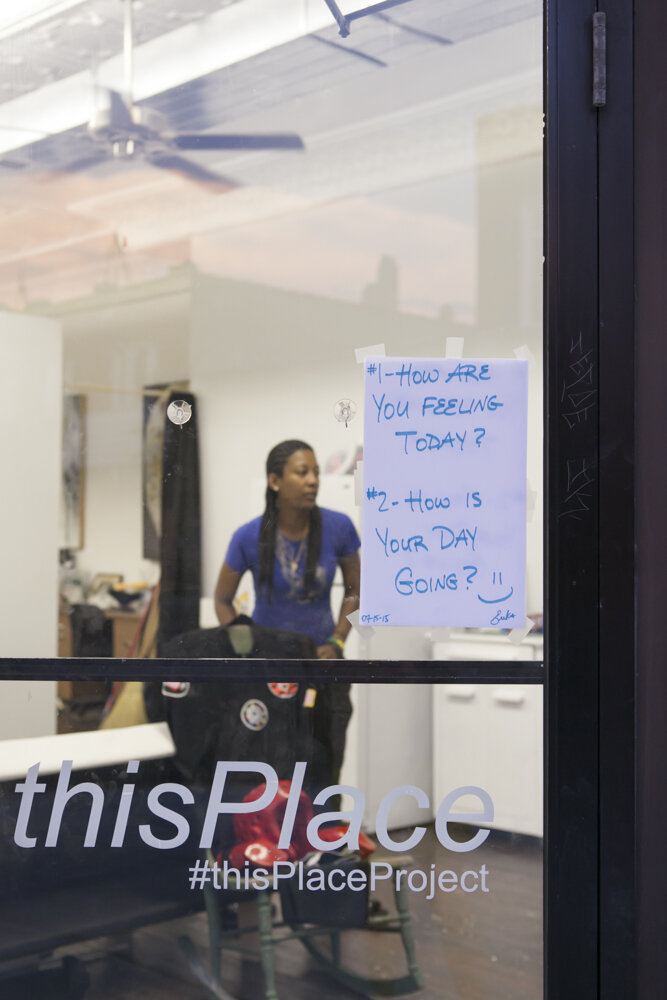 #1-HOW ARE
YOU FEELING
TODAY?
#2-HOW IS
YOUR DAY
GOING?
07-15-15
thisPlace
#thisPlaceProject